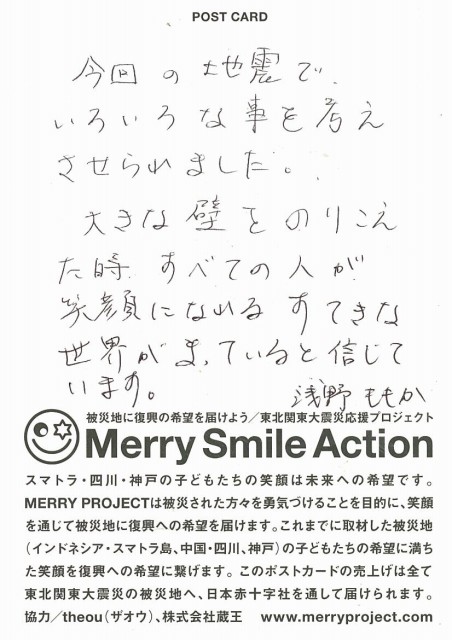 POST CARD
今回の地震で、
いろいろな事を考え
させられました。
大きな壁をのりこえ
た時、すべての人が
笑顔になれるすてきな
世界がまっていると信じて
います。
浅野ももか
被災地に復興の希望を届けよう/東北関東大震災応援プロジェクト
Merry Smile Action
スマトラ・四川・神戸の子どもたちの笑顔は未来への希望です。
MERRY PROJECTは被災された方々を勇気づけることを目的に、笑顔
を通じて被災地に復興への希望を届けます。これまでに取材した被災地
(インドネシア・スマトラ島、中国・四川、神戸)の子どもたちの希望に満ち
た笑顔を復興への希望に繋げます。このポストカードの売上げは全て
東北関東大震災の被災地へ、日本赤十字社を通して届けられます。
協力/theou(ザオウ)、株式会社蔵王 www.merryproject.com